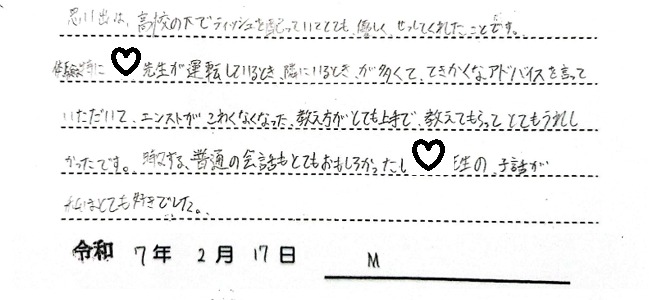 思い出は、高校の下でティッシュを配っていてとても優しくせっしてくれたことです。
体験時に 先生が運転しているとき、隣にいるとき、が多くて、てきかくなアドバイスを言って
いただいて、エンストがこわくなくなった、教え方がとても上手で、教えてもらってとてもうれし
かったです。時々する、普通の会話もとてもおもしろかったし 先生の 話が
私はとても好きでした。
令和 7年 2月 17日 M